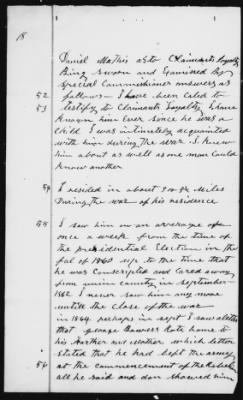 18
Daniel Mathis as to Claimants Loyalty
Being Sworn and Examined By
Special Commissioner answers as
52 follows — I have been Caled to
53 testify to Claimants Loyalty I have
Known him Ever Since he was a
Child I was intimately acquainted
with him during the war I Knew
him about as well as one man Could
Know another
54 I resided in about 3 or 4 Miles
During the war of his residence
55 I saw him on an avarage of
once a week from the time of
the presidential Election in the
fal of 1860 up to the time that
he was Conscripted and Cared away
from county in September
1862 I never saw him any more
untill the Close of the war
in 1864 perhaps in Sept I saw a letter
that george Bowers Rote home to
his farther and Mother which letter
stated that he had left the army
56 at the Commencement of the Rebelion
all he said and don Showed him